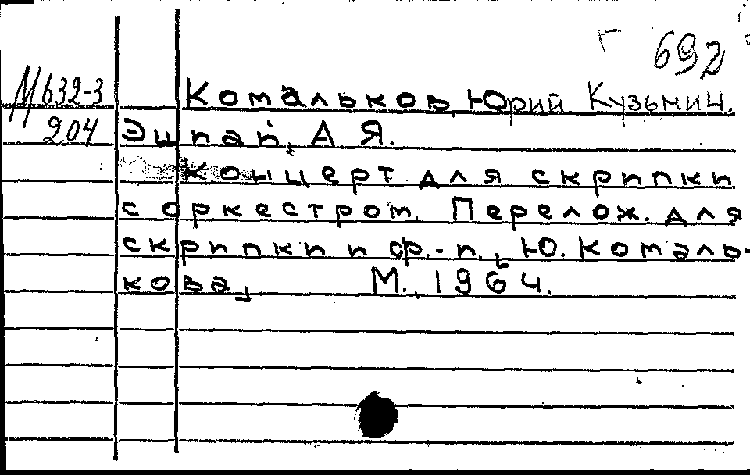 692
М632-3 Комальков, Юрий Кузьмич.
204 Эшпай, А Я.
Концерт для скрипки
с оркестром. Перелож. для
скрипки и ф.-п., Ю. Комаль-
кова,      М. 1964.